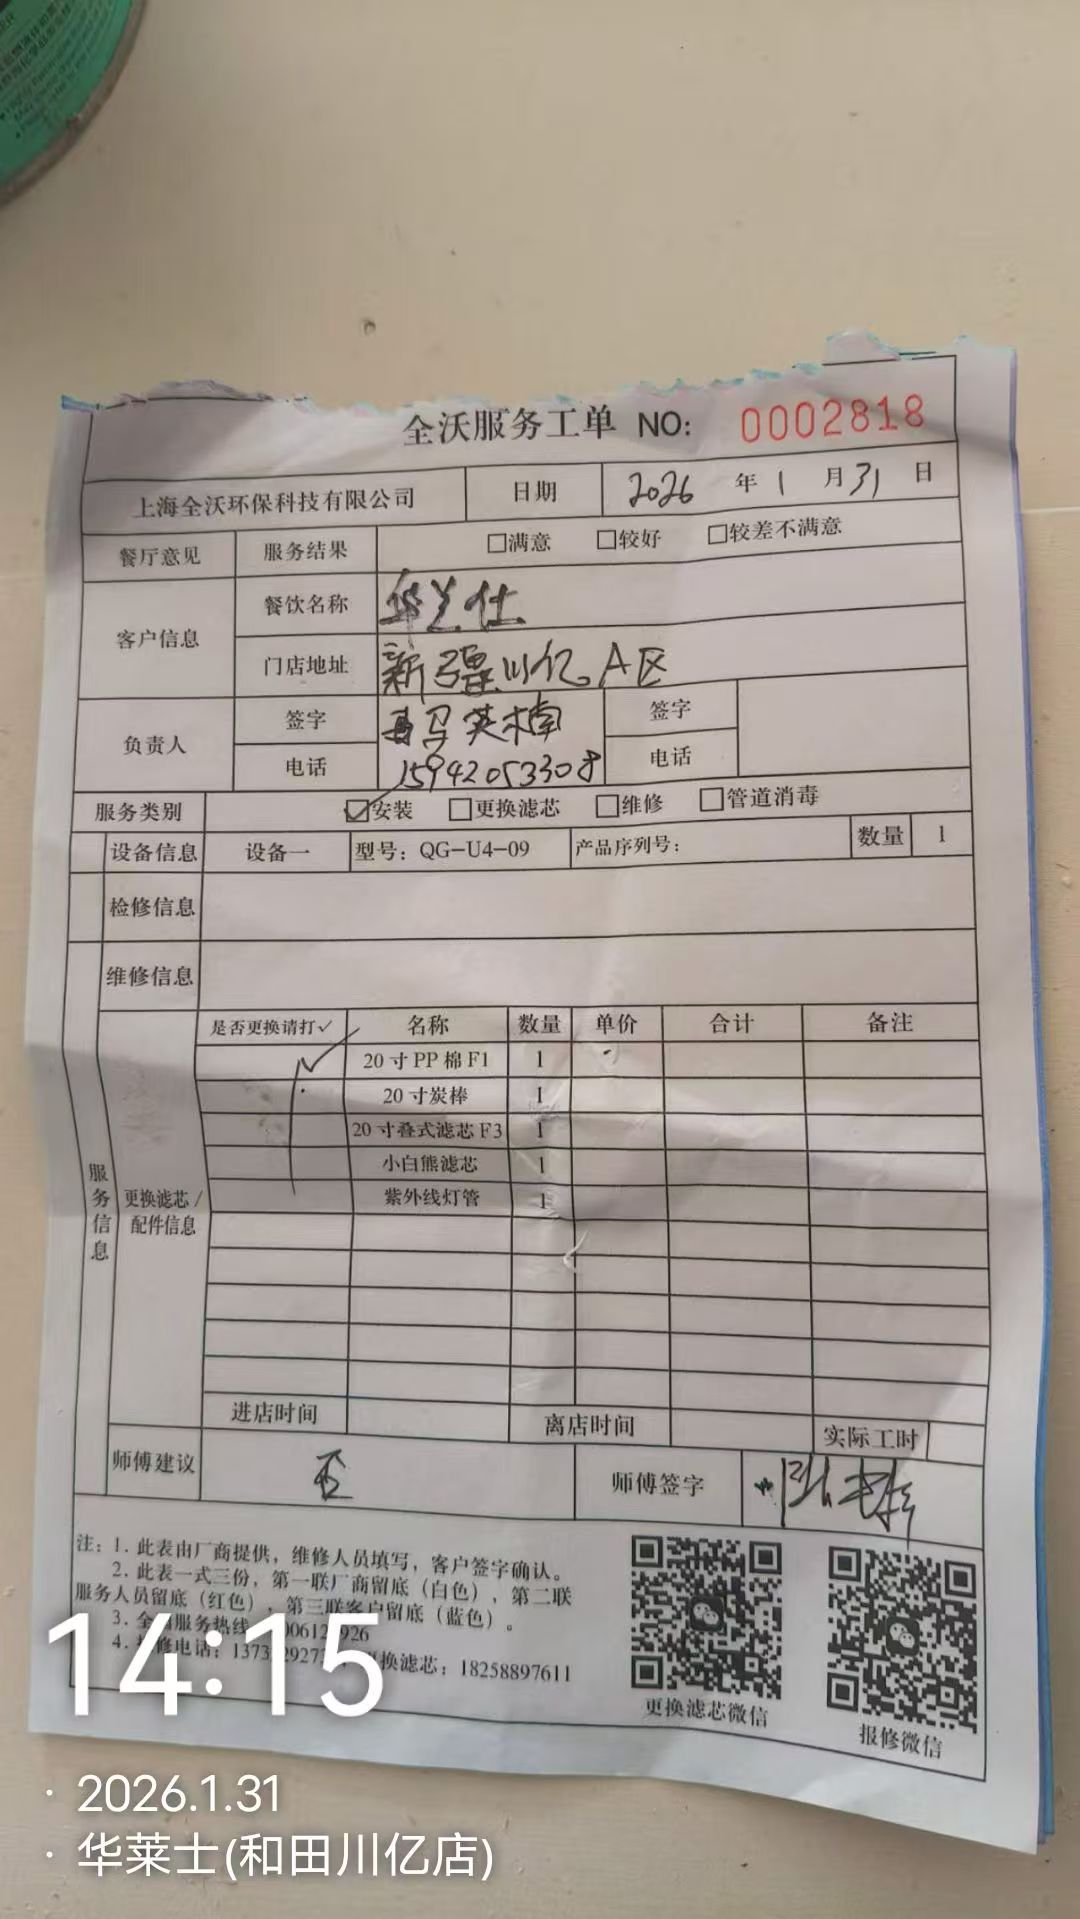 全沃服务工单 NO: 0002818
上海全沃环保科技有限公司 日期 2026 年 1 月 31 日
餐厅意见 服务结果 □满意 □较好 □较差不满意
客户信息 餐饮名称 华兰仕
门店地址 新疆川亿A区
负责人 签字 马英楠 签字
电话 15942053308 电话
服务类别 ☑安装 □更换滤芯 □维修 □管道消毒
设备信息 设备一 型号：QG-U4-09 产品序列号： 数量 1
检修信息
维修信息
服务信息
更换滤芯/配件信息
是否更换请打✓ 名称 数量 单价 合计 备注
✓ 20寸PP棉F1 1
20寸炭棒 1
20寸叠式滤芯F3 1
小白熊滤芯 1
紫外线灯管 1
进店时间 离店时间 实际工时
师傅建议 否 师傅签字
注：1. 此表由厂商提供，维修人员填写，客户签字确认。
2. 此表一式三份，第一联厂商留底（白色），第二联
服务人员留底（红色），第三联客户留底（蓝色）。
3. 全国服务热线
4. 报修电话： 更换滤芯：18258897611
更换滤芯微信
报修微信
14:15
· 2026.1.31
· 华莱士(和田川亿店)